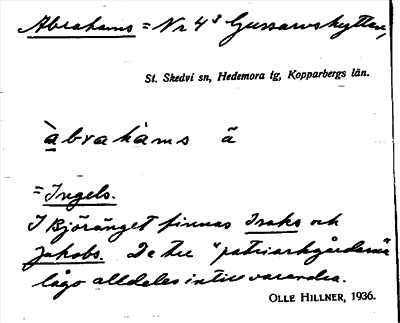 Abrahams = Nr 4³ Gussarvshyttan,
St. Skedvi sn, Hedemora tg, Kopparbergs län.
àbrahàms ä
= Ingels.
I Björänget finnas Isaks och
Jakobs. De tre "patriarkgårdarna
lågo alldeles intill varandra.
OLLE HILLNER, 1936.